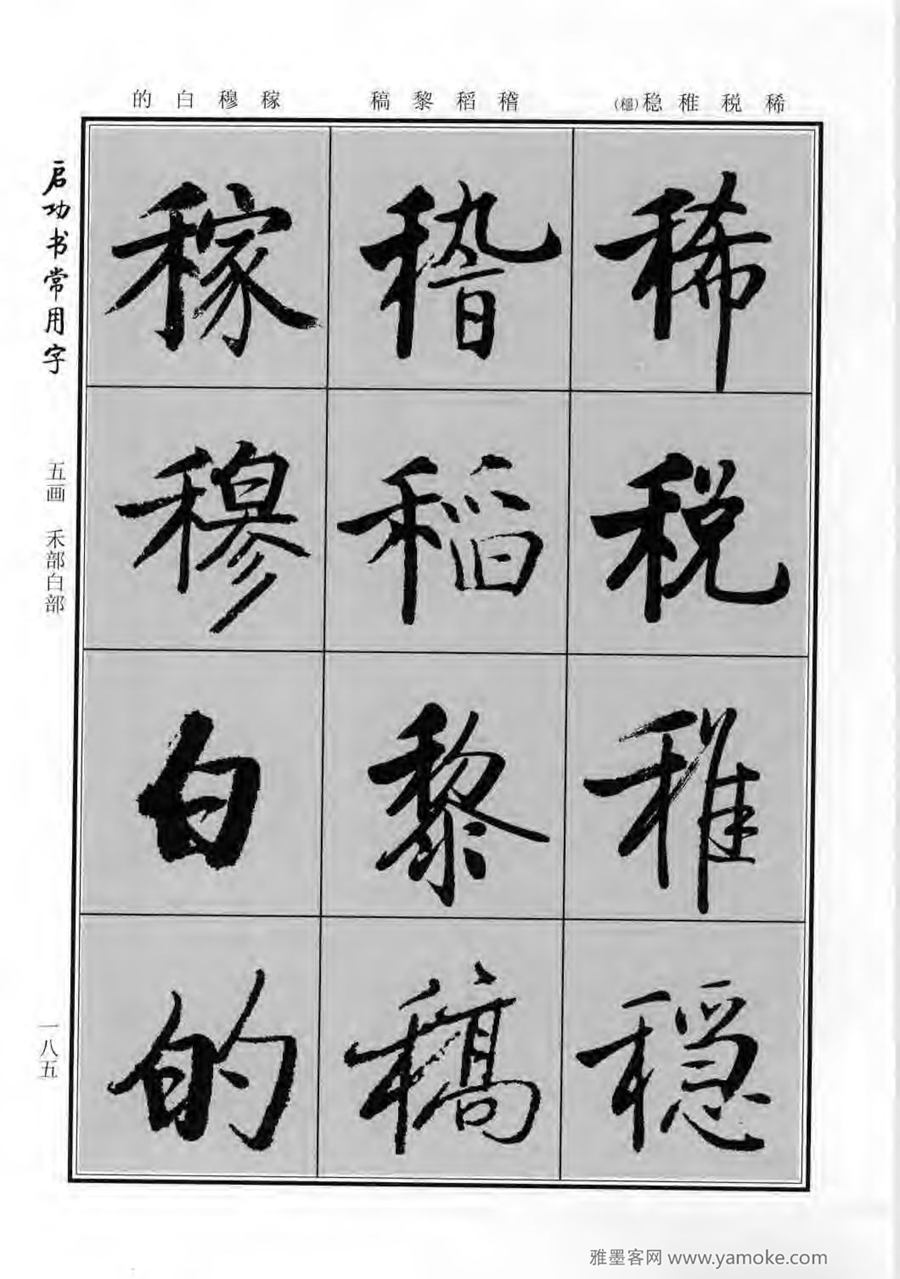 稀税稚稳(穩) 稽稻黎稿 稼穆白的
稀税稚稳
稽稻黎稿
稼穆白的
启功书常用字
五画 禾部白部
一八五
雅墨客网 www.yamoke.com